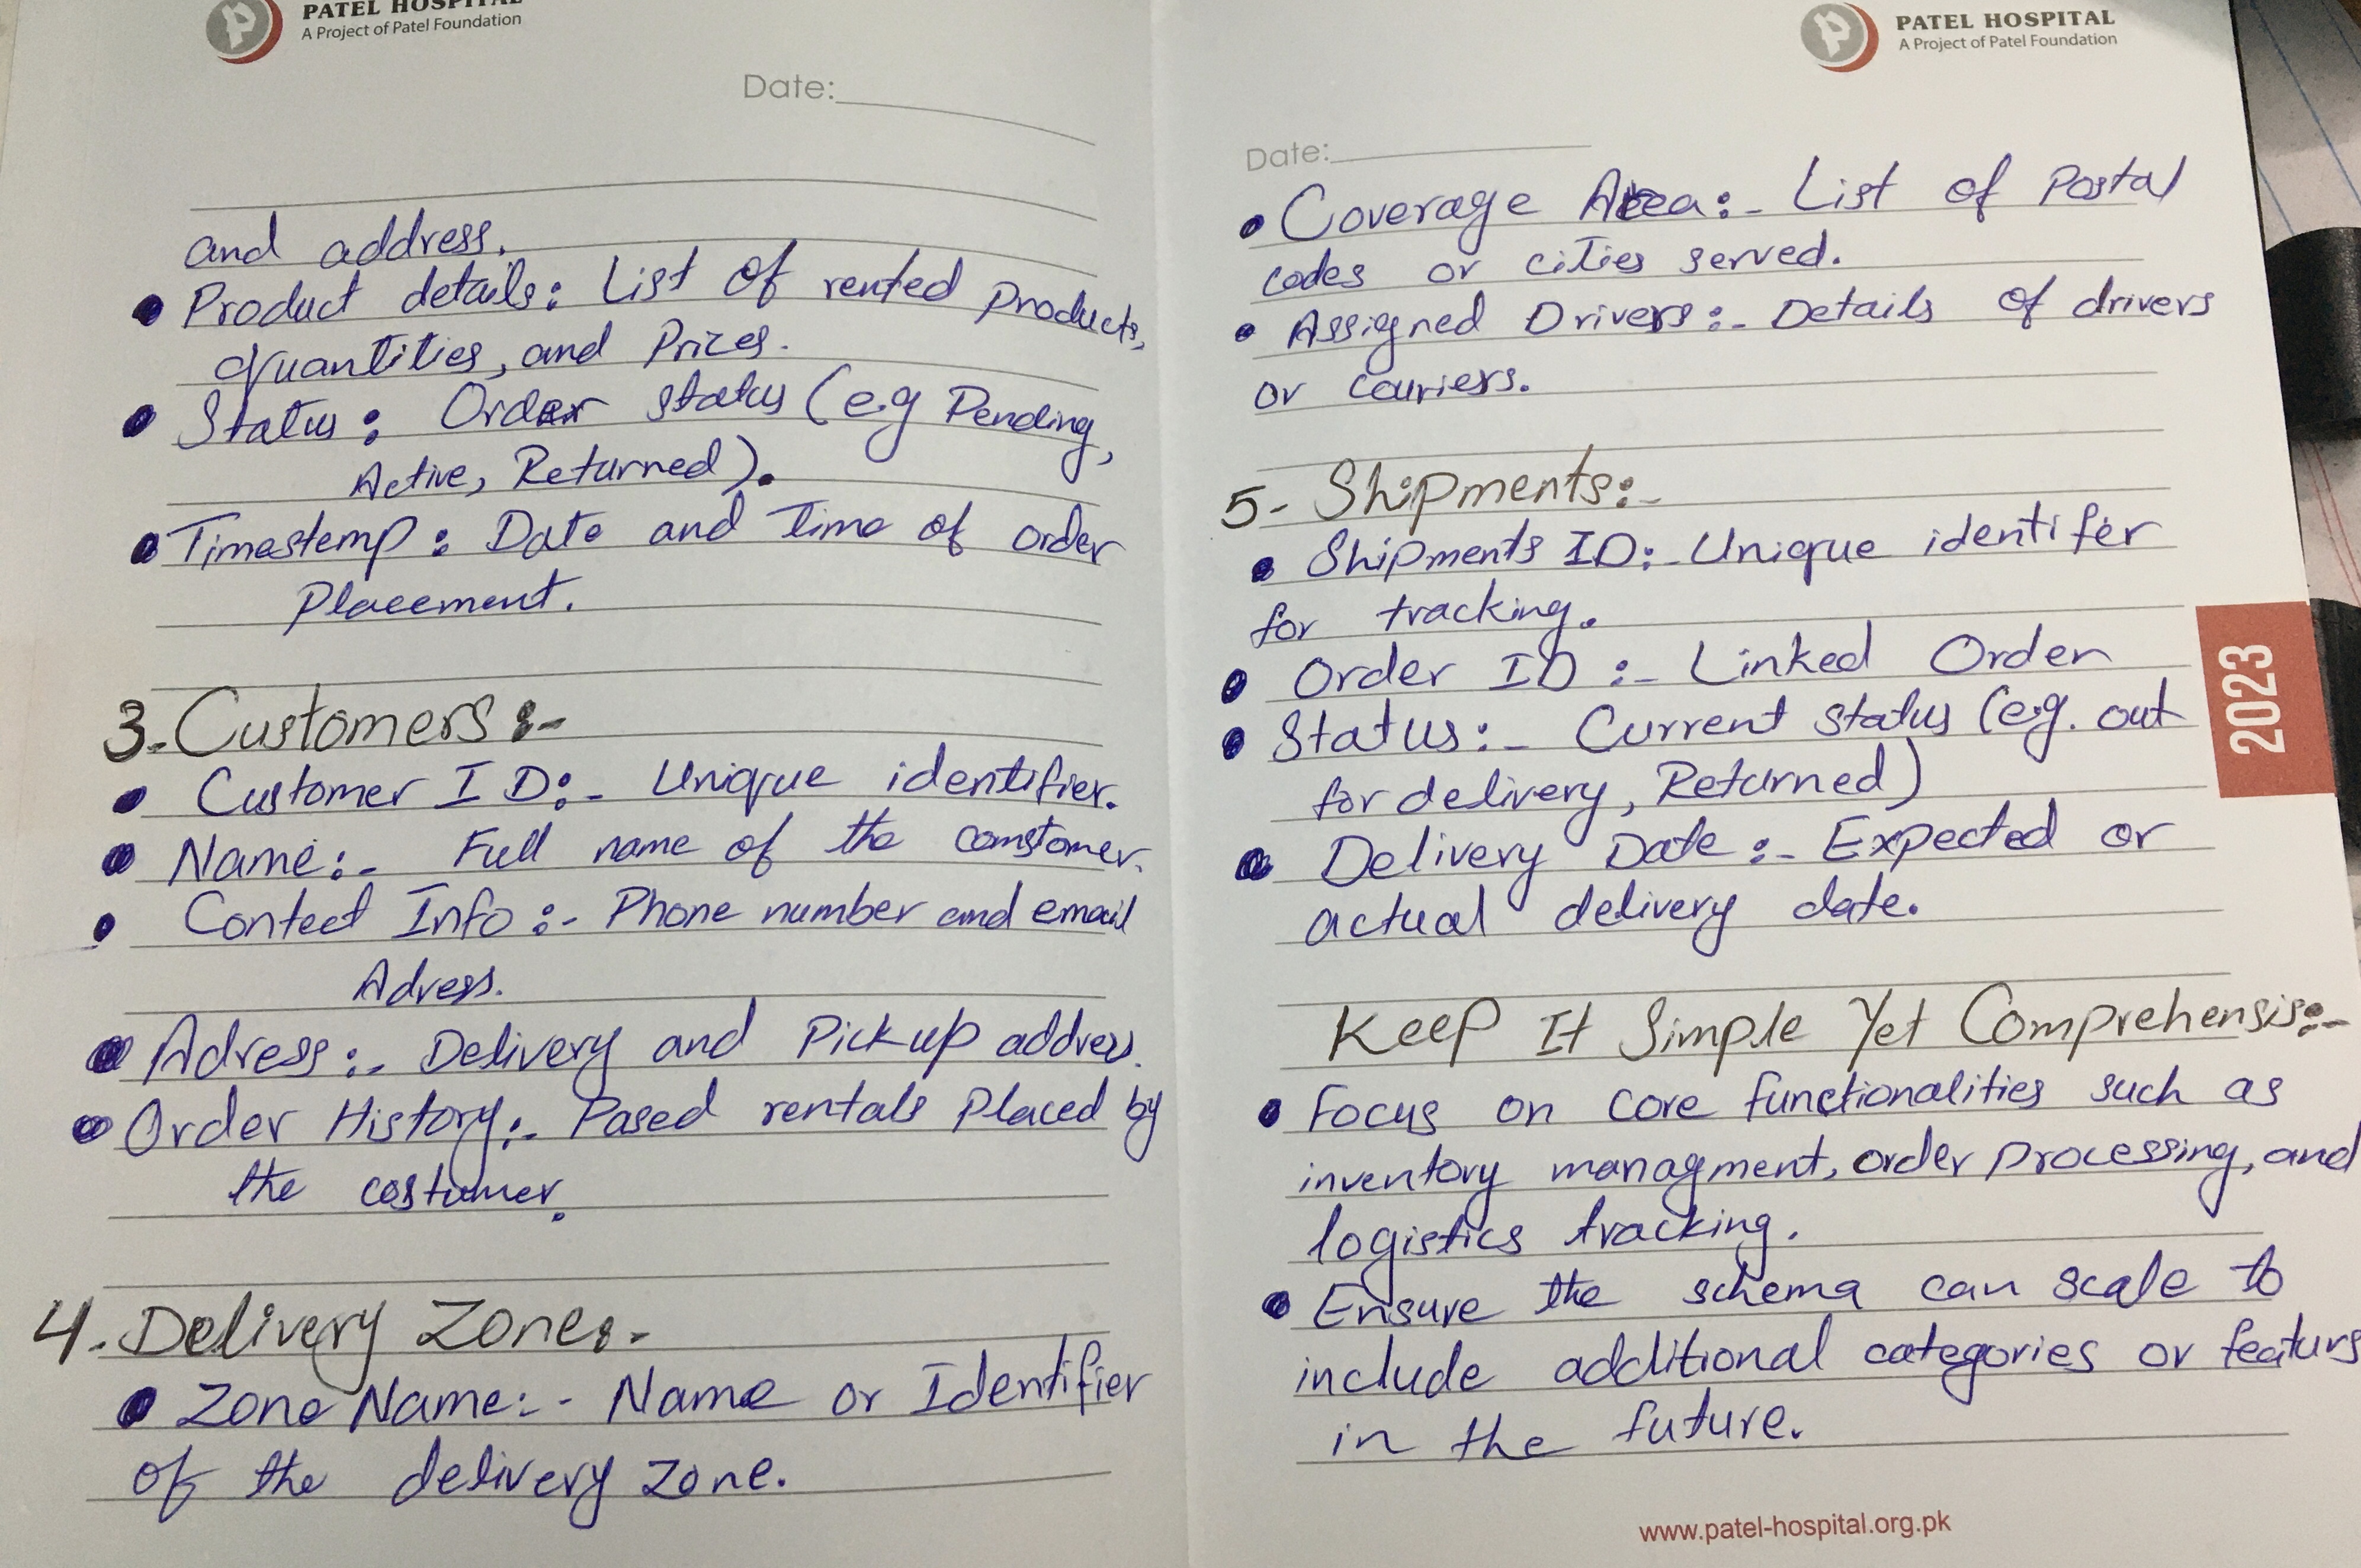 PATEL HOSPITAL
A Project of Patel Foundation
Date:
and address.
• Product details: List of rented Products,
quantities, and Prices.
• Status: Order status (e.g Pending,
Active, Returned).
• Timestemp: Date and Time of order
Placement.
3. Customers:-
• Customer ID:- Unique identifier.
• Name:- Full name of the comstomer.
• Contect Info:- Phone number and email
Adress.
• Adress:- Delivery and Pickup address.
• Order History:- Pased rentals Placed by
the costumer.
4. Delivery Zone:-
• Zone Name:- Name or Identifier
of the delivery zone.
PATEL HOSPITAL
A Project of Patel Foundation
Date:
• Coverage Area:- List of Postal
codes or cities served.
• Assigned Drivers:- Details of drivers
or couriers.
5- Shipments:-
• Shipments ID:- Unique identifer
for tracking.
• Order ID:- Linked Order
• Status:- Current status (e.g. out
for delivery, Returned)
• Delivery Date:- Expected or
actual delivery date.
Keep It Simple Yet Comprehensis:-
• Focus on core functionalities such as
inventory managment, order processing, and
logistics tracking.
• Ensure the schema can scale to
include additional categories or featurs
in the future.
2023
www.patel-hospital.org.pk